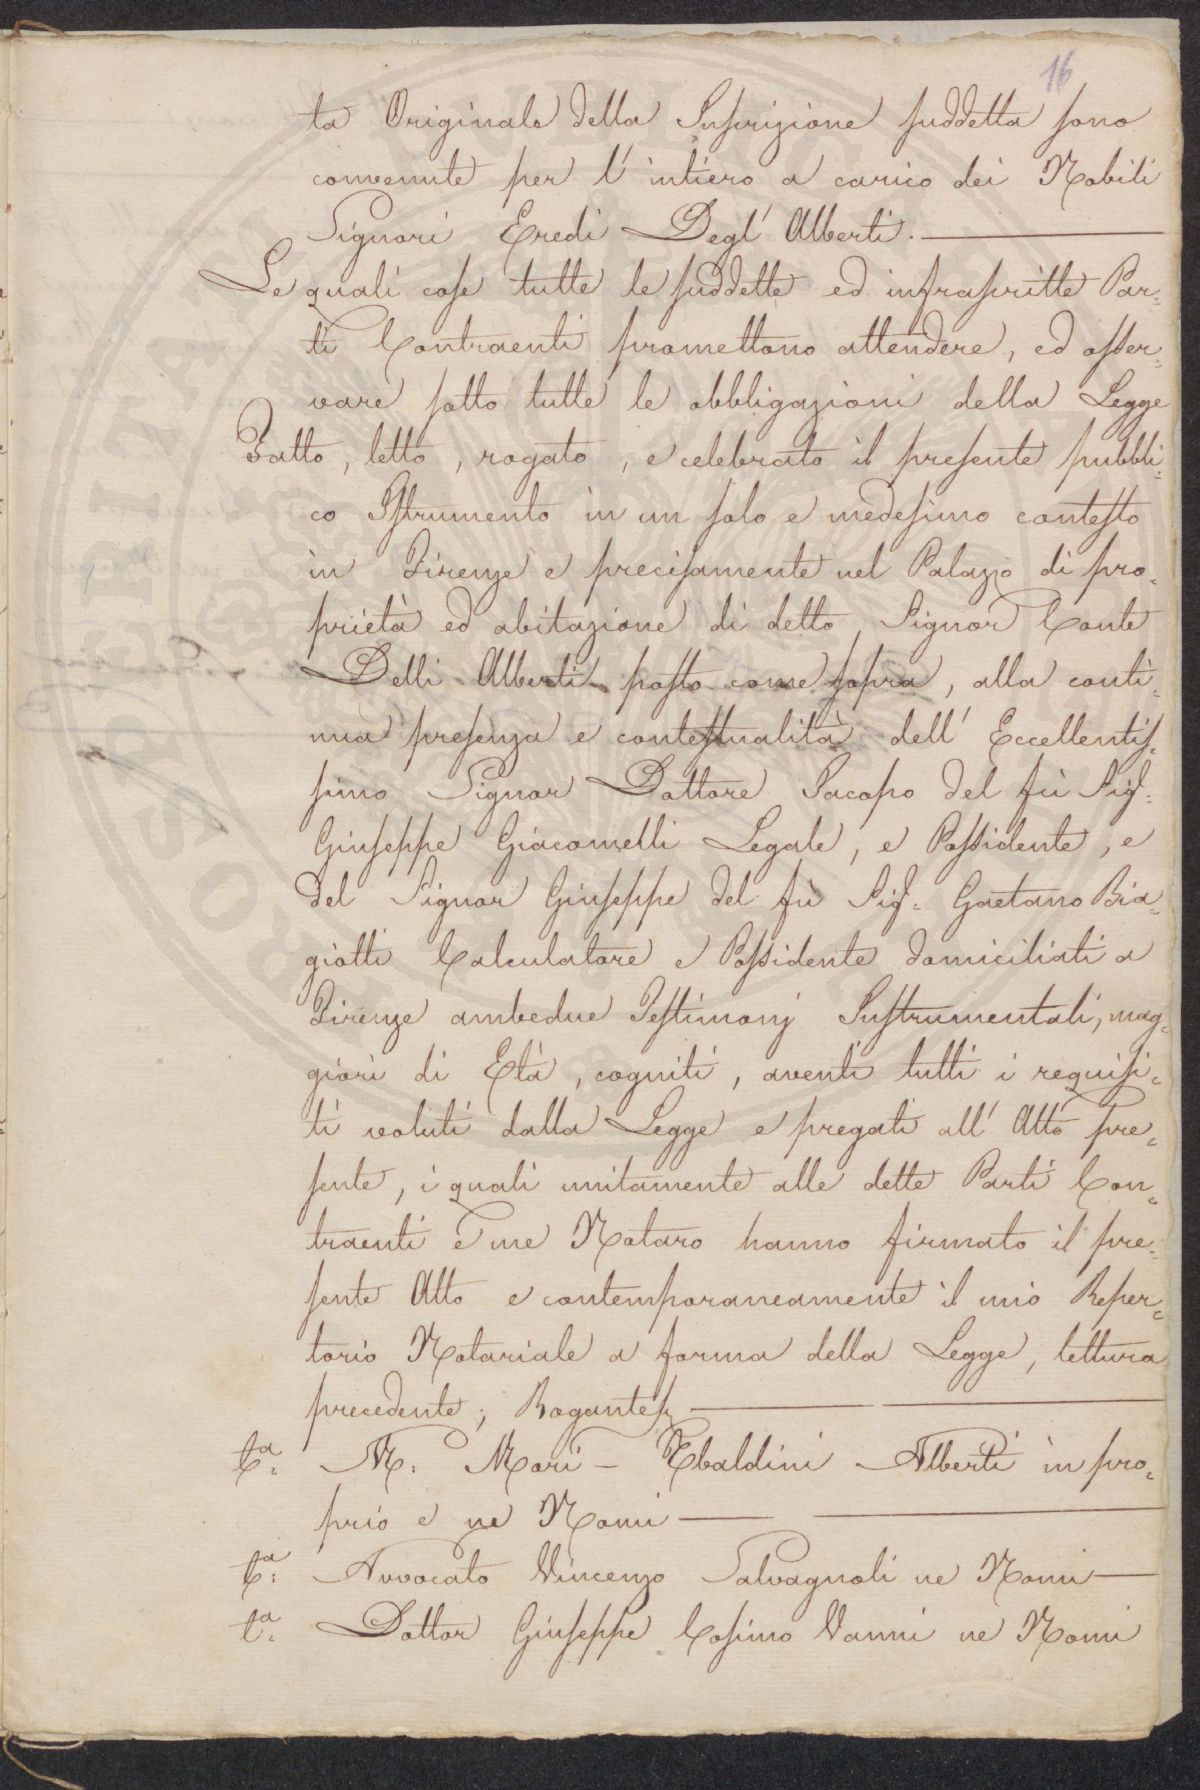 16
ta Originale della Inscrizione suddetta sono
convenute per l' intiero a carico dei Nobili
Signori Eredi Degl' Alberti.
Le quali cose tutte le suddette ed infrascritte Par=
ti Contraenti promettono attendere, ed osser=
vare sotto tutte le obbligazioni della Legge
Fatto, letto, rogato, e celebrato il presente pubbli=
co Istrumento in un solo e medesimo contesto
in Firenze e precisamente nel Palazzo di pro=
prietà ed abitazione di detto Signor Conte
Delli Alberti posto come sopra, alla conti=
nua presenza e contestualità dell' Eccellentis=
simo Signor Dottore Jacopo del fù Sig.=
Giuseppe Giacomelli Legale, e Possidente, e
del Signor Giuseppe del fù Sig.= Gaetano Bia=
giotti Calculatore e Possidente domiciliati a
Firenze ambedue Testimonj Instrumentali, mag=
giori di Età, cogniti, aventi tutti i requisi=
ti voluti dalla Legge e pregati all' Atto pre=
sente, i quali unitamente alle dette Parti Con=
traenti e me Notaro hanno firmato il pre=
sente Atto e contemporaneamente il mio Reper=
torio Notariale a forma della Legge, lettura
precedente; Rogantes
ta. M. Mori - Ubaldini Alberti in pro=
prio e ne Nomi
ta: Avvocato Vincenzo Salvagnoli ne Nomi
ta. Dottor Giuseppe Cosimo Vanni ne Nomi